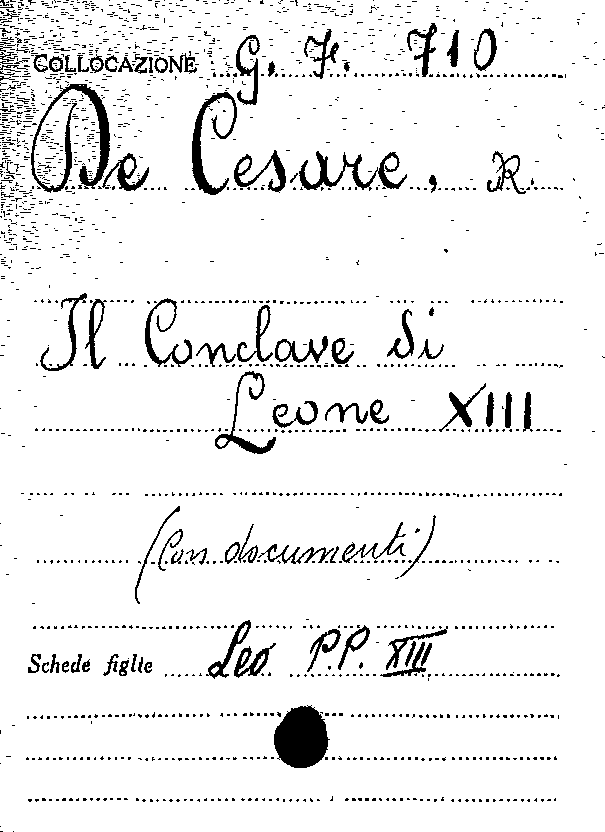 COLLOCAZIONE G. F. 710
De Cesare, R.
Il Conclave di
Leone XIII
(Con documenti)
Schede figlie Leo P.P. XIII